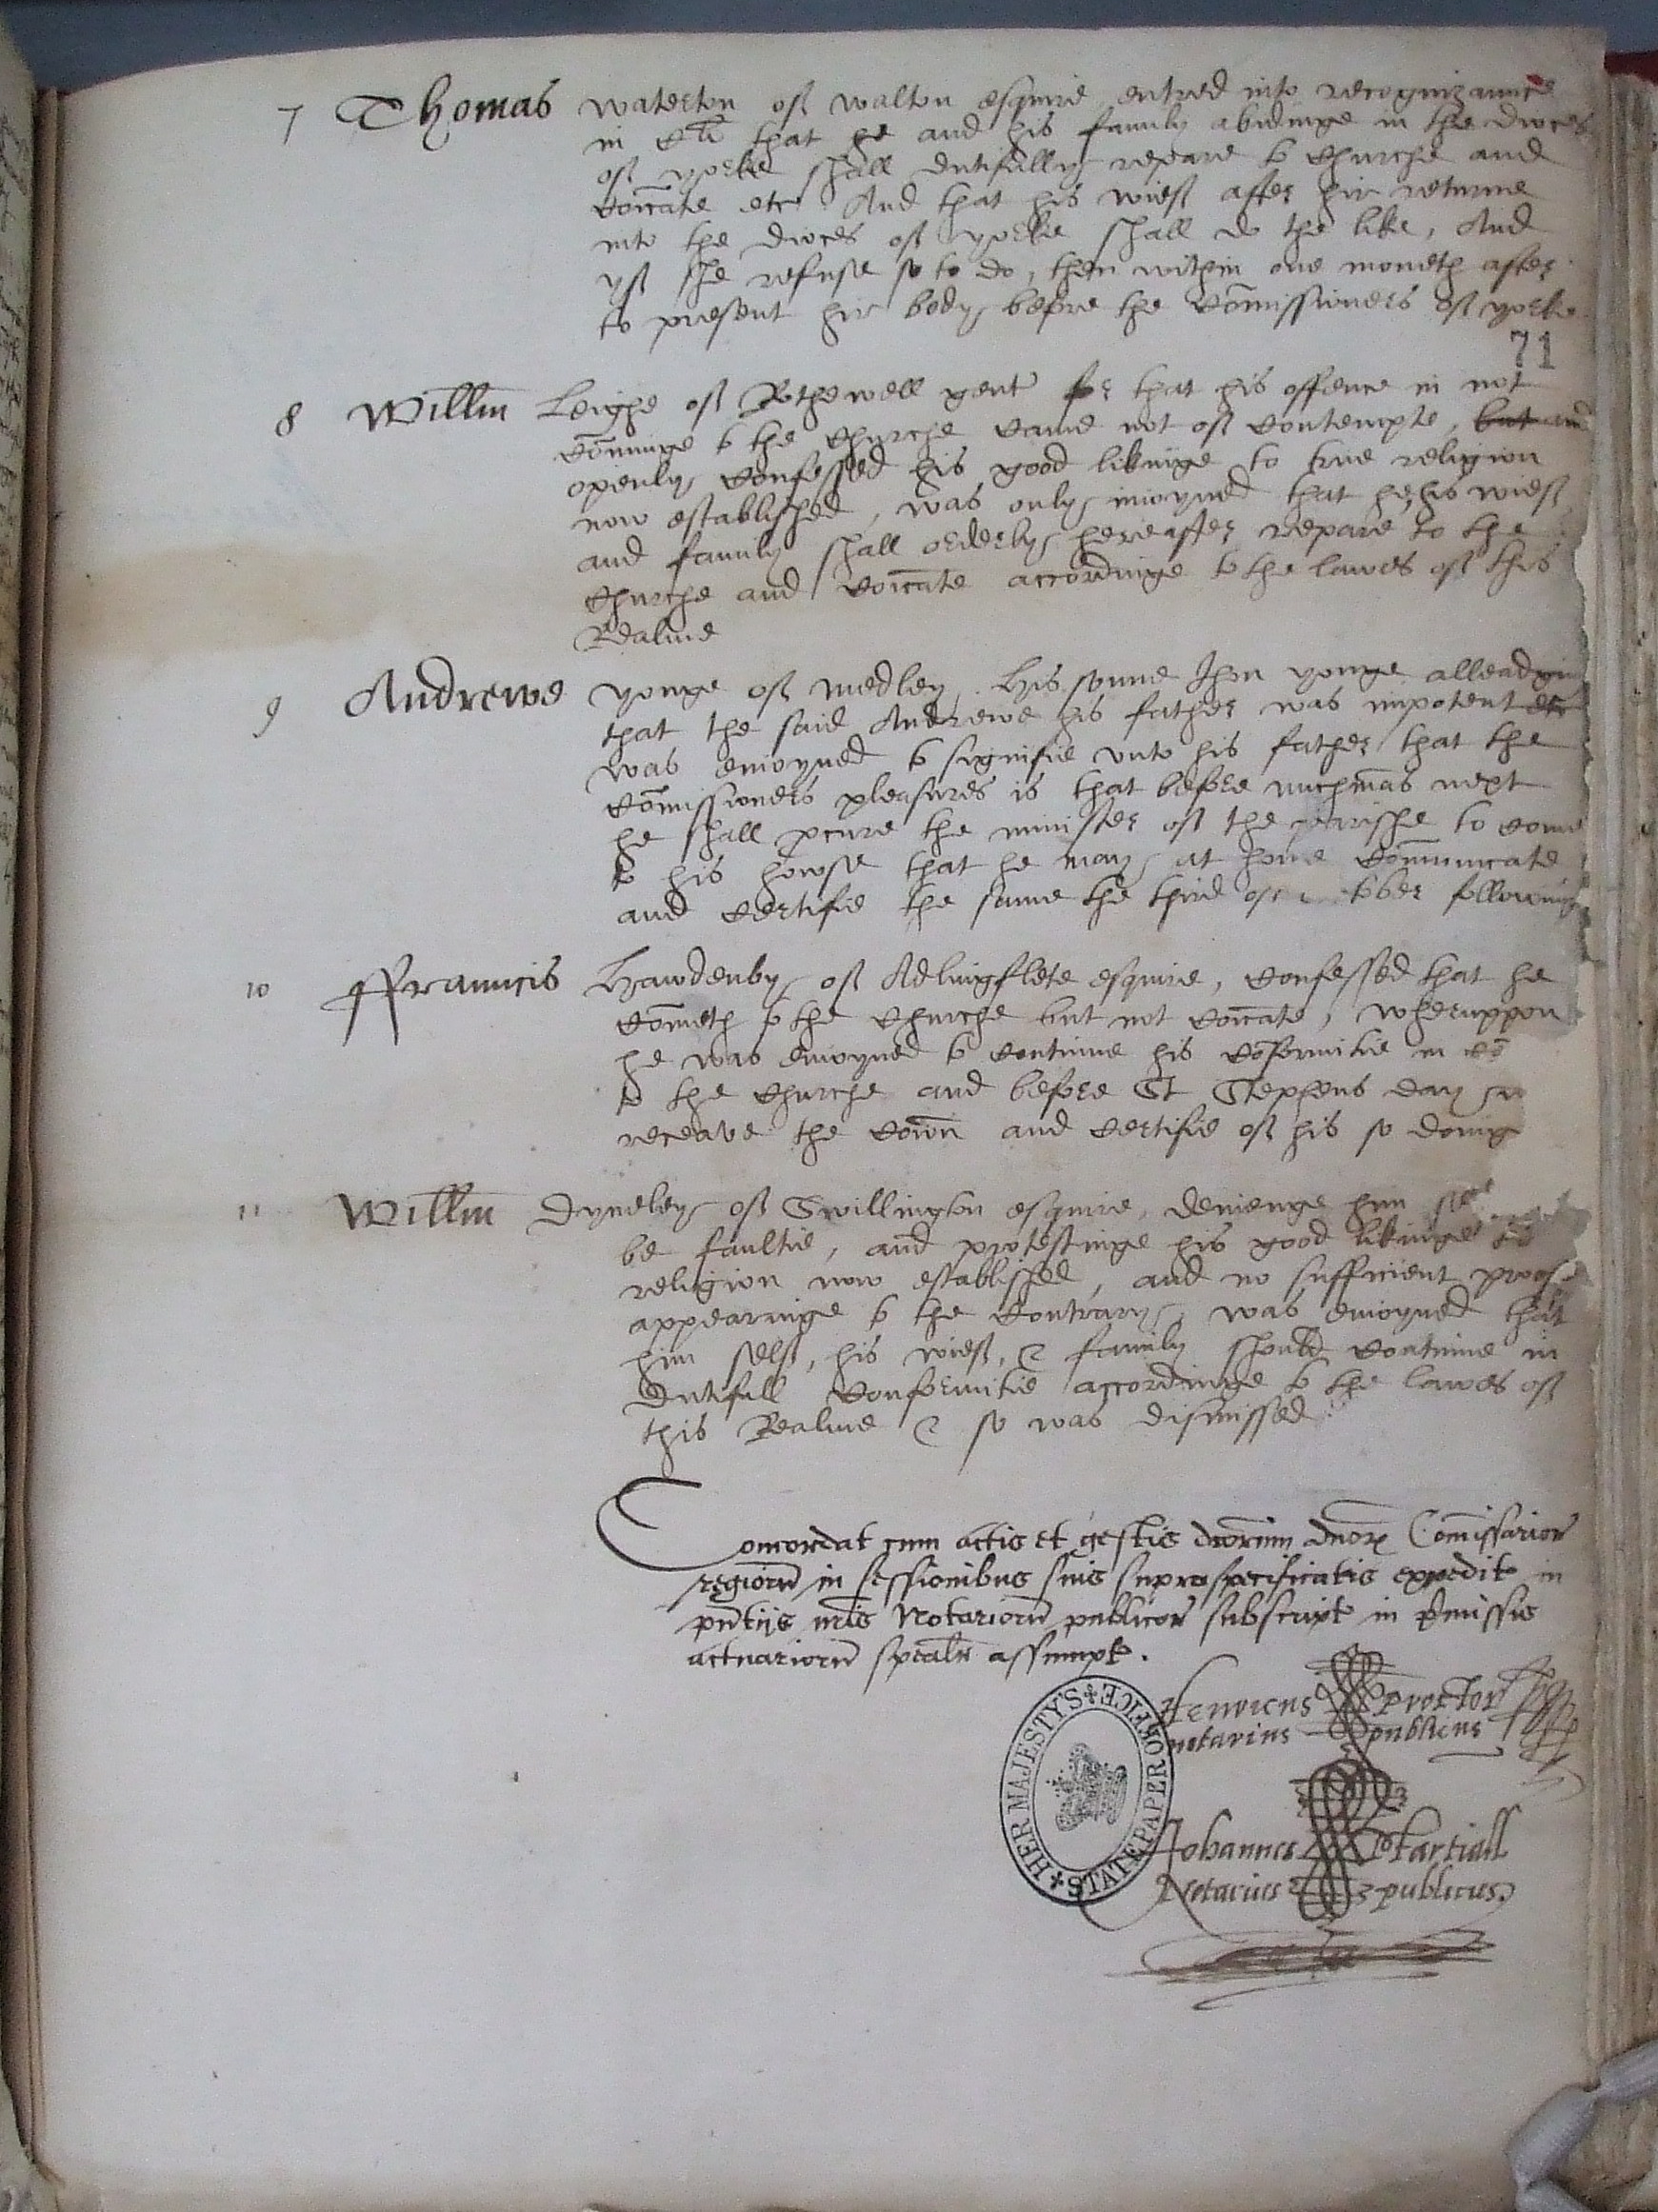 7 Thomas Waterton of Walton esquire entred into recognizannce
in CC li that he and his family abidinge in the dioces
of yorke shall dutifullye repare to Churche and
coicate etc And that his wief after hir returne
into the dioces of yorke shall do the like, And
yf she refuse so to do, then within one moneth after
to present hir body before the Comissioners of yorke
71
8 Willm Leighe of Rothewell gent for that his offence in not
cominge to the Churche came not of contempte, but and
openly confessed his good likinge to true religion
now established, was only inioyned that he, his wief
and family shall orderly hereafter repare to the
Churche and coicate accordinge to the lawes of this
Realme
9 Andrewe yonge of Medley. His sonne Jhon yonge alleadgin
that the said Andrewe his father was impotent etc
was enioyned to signifie unto his father that the
Comissioners pleasures is that before michmas next
he shall pcure the minister of the parishe to come
to his howse that he may at home comunicate
and certifie the same the third of tober following
10 Ffrauncis Hawdenby of Adlingflete esquire, confessed that he
cometh to the Churche but not coicate, wheruppon
he was enioyned to continue his coformitie in co
to the Churche and before St Stephens day
receave the coion and certifie of his so doing
11 Willm Dyneley of Swillington esquire, denienge him self
be faultie, and protestinge his good likinge to
religion now established, and no sufficient proof
appearinge to the contrary, was enioyned that
him self, his wief, & family should continue in
dutifull conformitie accordinge to the lawes of
this Realme & so was dismissed
Concordat cum actis et gestis dcorum dnor Comissarior
regioru in sessionibus suis supraspecificatis expedit in
pntijs nris Notarioru publicor subscript in pmissis
actuarioru spealr assumpt.
Henricus proctor
notarius publicus
Johannes Martiall
Notarius publicus
HER MAJESTY'S STATE PAPER OFFICE